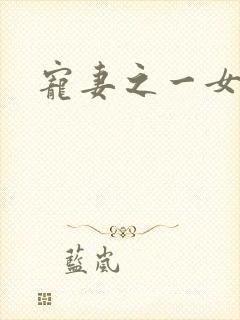 寵妻之一女
藍嵐